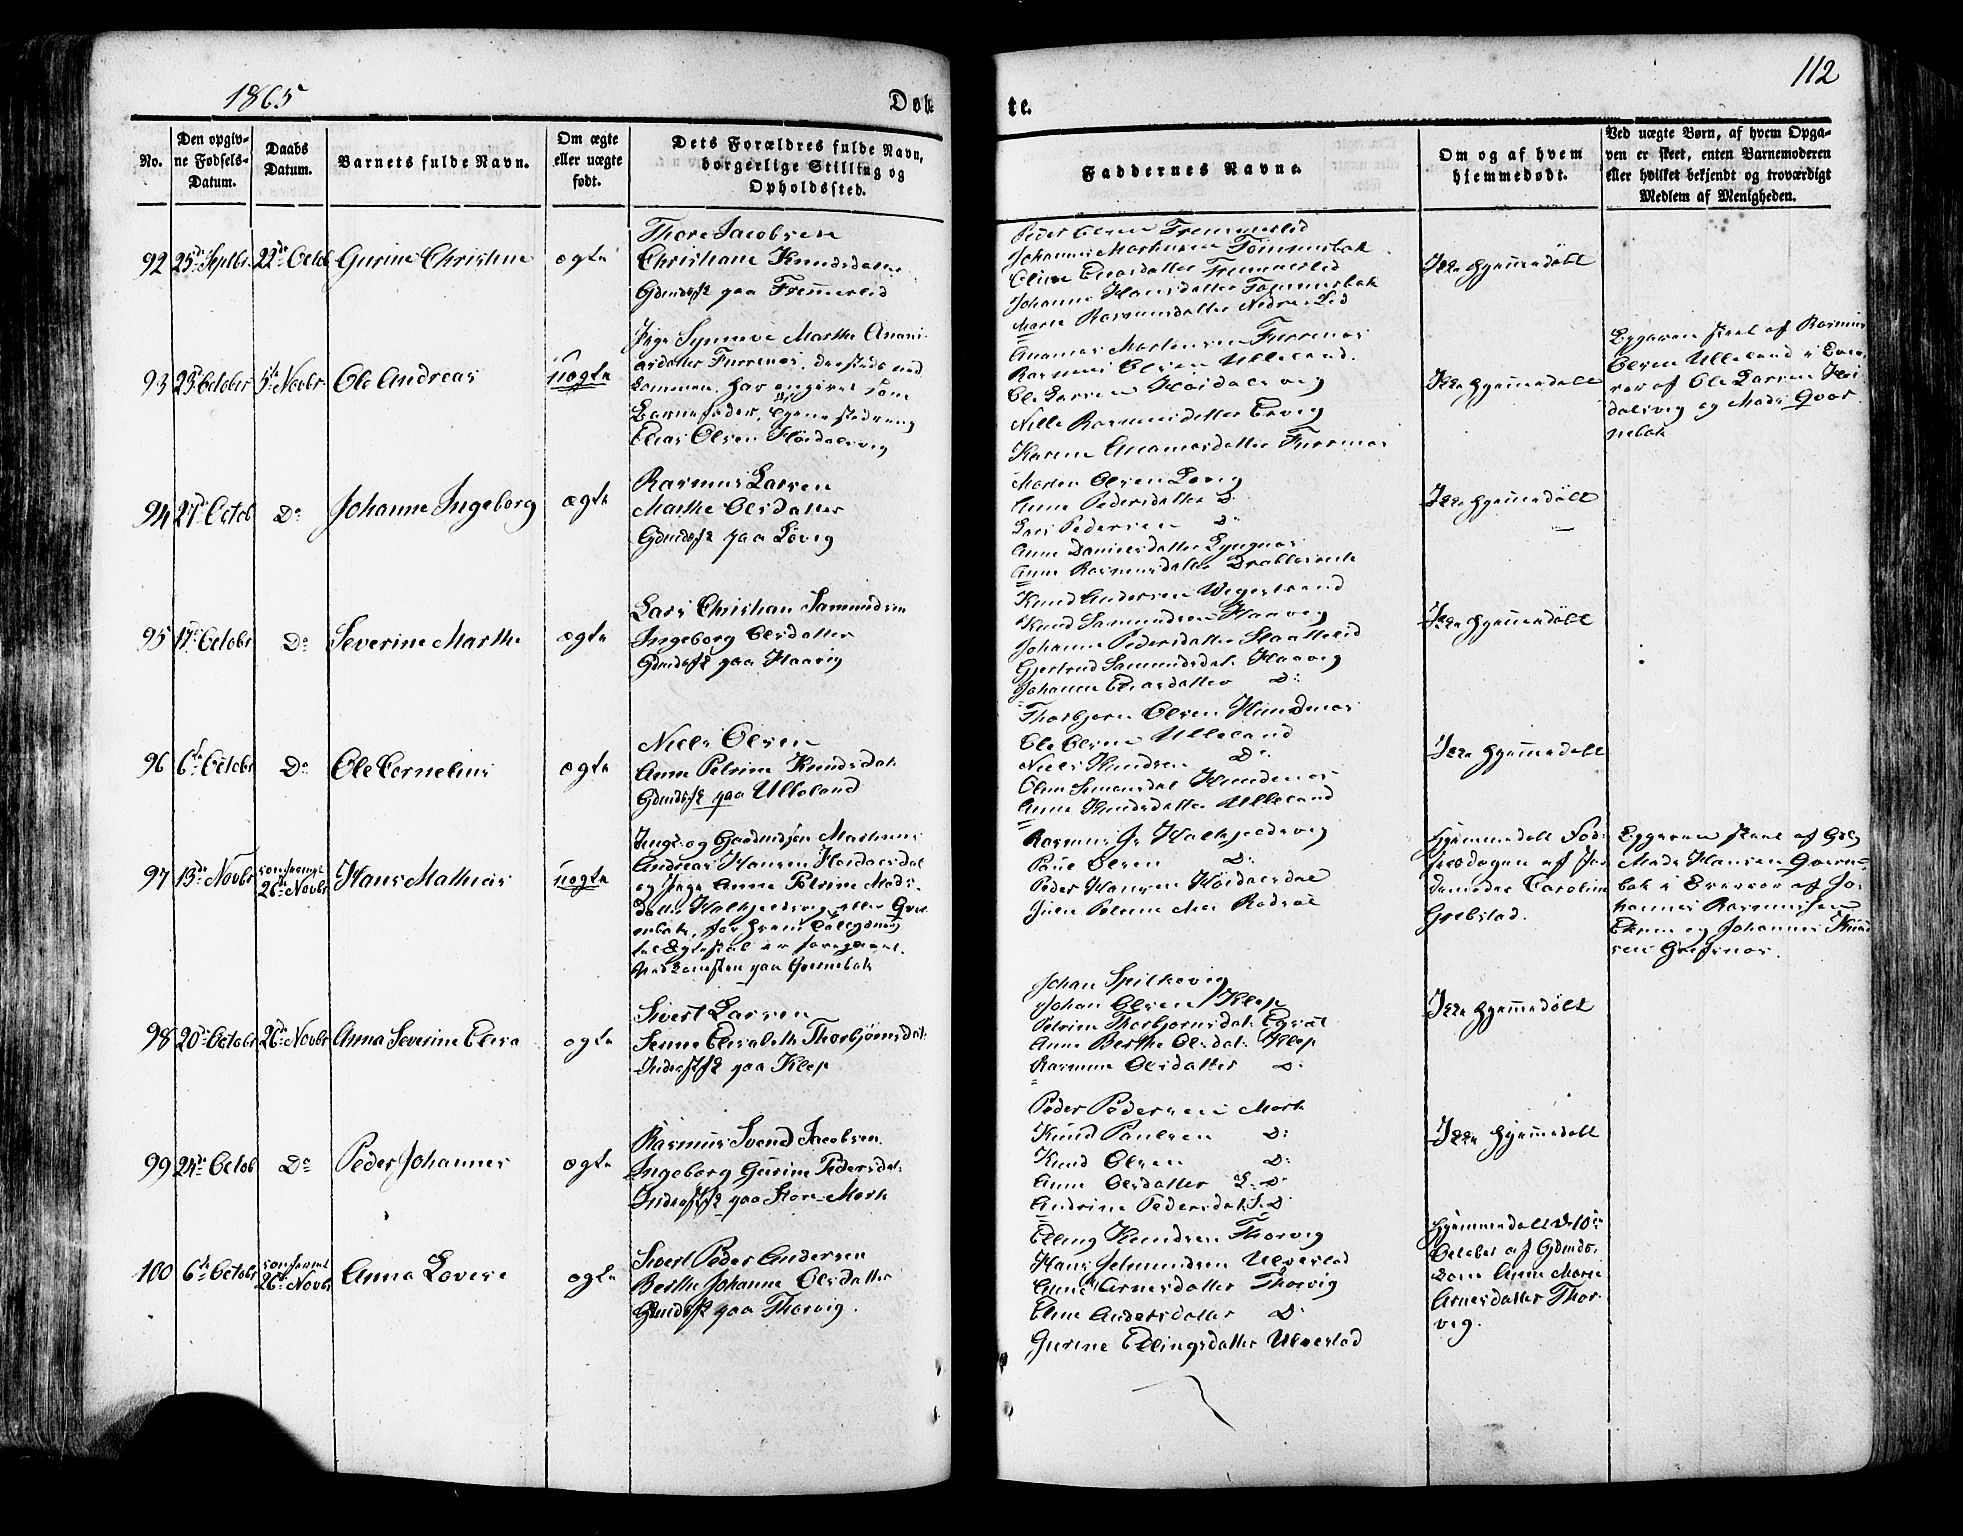 1865
Døb-
te.
112
No.
Den opgiv-
ne Fødsels-
Datum.
Daabs
Datum.
Barnets fulde Navn.
Om ægte
eller uægte
født.
Dets Forældres fulde Navn,
borgerlige Stilling og
Opholdssted.
Faddernes Navne.
Om og af hvem
hjemmedøbt.
Ved uægte Børn, af hvem Opga-
ven er skeet, enten Barnemoderen
eller hvilket bekjendt og troværdigt
Medlem af Menigheden.
92 25de Septbr 22de Octob Gurine Christine ægte
Thore Jacobsen
Christiane Knudsdatter
Gdmdsfk paa Fremmerlid
Peder Olsen Fremmerlid
Johannes Martinsen Tømmerbak
Oline Eliasdatter Fremmerlid
Johanne Hansdatter Tømmerbak
Marte Rasmusdatter Nedre Lid
Ikke hjemmedøbt
93 23de October 5te Novbr Ole Andreas uægte
Pige Synneve Marthe Anani-
asdatter Furrenes,
har angivet som
Barnefader,
Elias Olsen Høidalsvig
Ananias Mortensen Furrenes
Rasmus Olsen Ulleland.
Ole Larsen Høidalsvig
Nille Rasmusdatter Løvig
Karen Ananiasdatter Furrenes
Ikke hjemmedøbt
Opgaven skeet af Rasmus
Olsen Ulleland i Over-
vær af Ole Larsen Høi-
dalsvig og Mads Qver-
nebak
94 27de Octob Do Johanne Ingeborg ægte
Rasmus Larsen
Marthe Olsdatter
Gdmdsfk paa Løvig
Morten Olsen Løvig
Anne Pedersdatter D:
Lars Pedersen D:
Anne Danielsdatter Lyngnes
Anne Rasmusdatter
Ikke hjemmedøbt
95 17de Octobr Do Severine Marthe ægte
Lars Christian Samundsen
Ingeborg Olsdatter
Gdmdsfk paa Haavig
Knud Andersen Wegestrand
Knud Samundsen Haavig
Johanne Pedersdatter
Gjertrud Samundsdat. Haavig
Johanne Eliasdatter D:
Ikke hjemmedøbt
96 6te Octobr Do Ole Cornelius ægte
Niels Olsen
Anne Petrine Knudsdat
Gdmdsfk paa Ulleland
Thorbjørn Olsen Hundenes
Ole Olsen Ulleland
Niels Knudsen D:
Oline Simonsdat Hundenes
Anne Knudsdatter Ulleland
Ikke hjemmedøbt
97 13de Novbr confirmt
26de Novbr Hans Mathias uægte
Unge og Gaardmdsøn Martinus
Andreas Hansen Høidalsdal
og Pige Anne Petrine Mads-
datter Halkjeldsvig eller Qver-
nebak, for hvem
til Ægteskab er foregaaet.
paa Qvernebak
Rasmus Halkjeldsvig
Paul Olsen D:
Peder Hansen Høidalsdal
Julie Petrine Rødsæt
Hjemmedøbt Fød-
selsdagen af Jor-
demoder Caroline
Grebstad.
Opgaven skeet af
Mads Hansen Qverne-
bak i Overvær af Jo-
hannes Rasmussen
og Johannes Knud
sen Grefsnes.
98 20de Octobr 26de Novbr Anna Severine Elisa ægte
Sivert Larsen
Severine Elisabeth Thorbjørnsdat.
Inderstfk paa Klep
Johan Spilkevig
Johan Olsen Klep
Petrine Thorbjørnsdat.
Anne Berthe Olsdat. Klep
Rasmine Olsdatter D:
Ikke hjemmedøbt
99 24de Octob Do Peder Johannes ægte
Rasmus Svend Jacobsen
Ingeborg Gurine Pedersdat.
Inderstfk paa Store Mork
Peder Pedersen Mork
Knud Paulsen D:
Knud Olsen D:
Anne Olsdatter L. D:
Andrine Pedersdat. D:
Ikke hjemmedøbt
100 6te Octobr confirmt
26de Novbr Anna Lovise ægte
Sivert Peder Andersen
Berthe Johanne Olsdatter
Gdmdsfk paa Thorvig.
Elling Knudsen Thorvig
Hans Ulvestad
Anne M Arnesdatter Thorvig
Eline Andersdatter D:
Gurine Ellingsdatter Ulvestad
Hjemmedøbt d. 10de
October af Gdmds-
Anne Marie
Arnesdatter Thor-
vig.